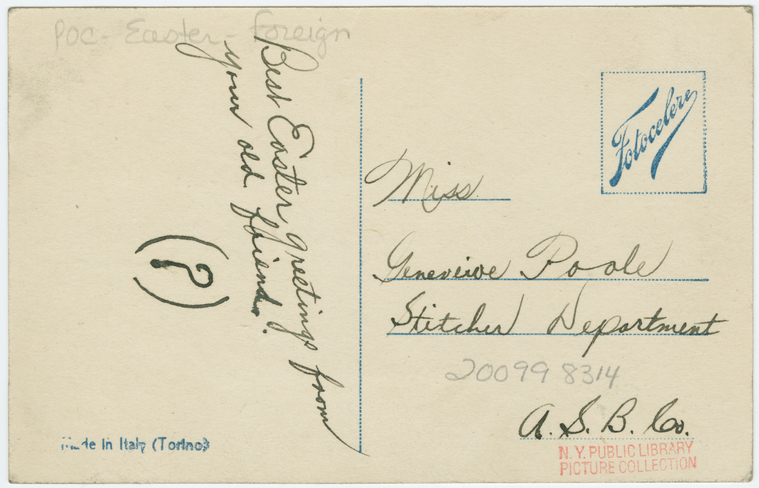 POC - Easter - Foreign
Best Easter greetings from
your old friend.
(?)
Made in Italy (Torino)
Fotocelere
Miss
Genevieve Poole
Stitcher Department
200998314
A. S. B. Co.
N.Y. PUBLIC LIBRARY
PICTURE COLLECTION